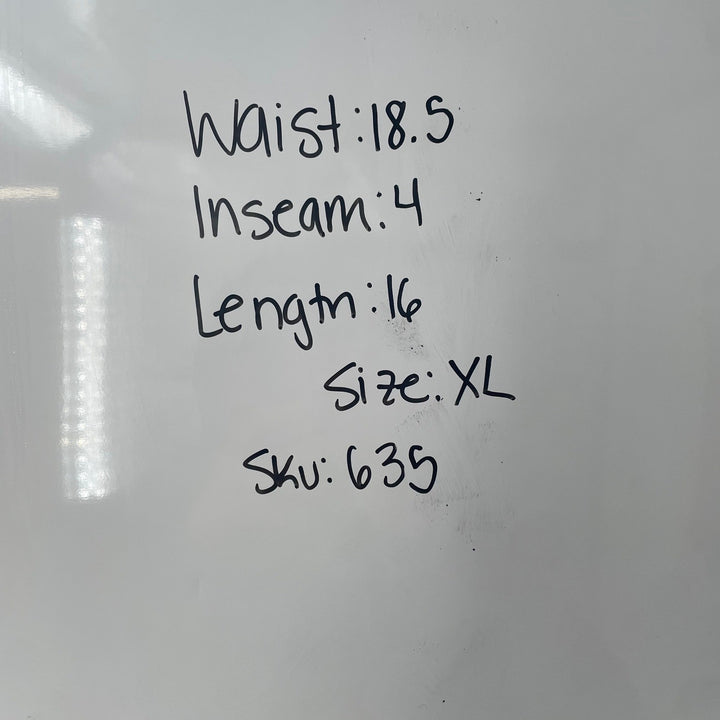 Waist:18.5
Inseam:4
Length:16
Size:XL
Sku:635